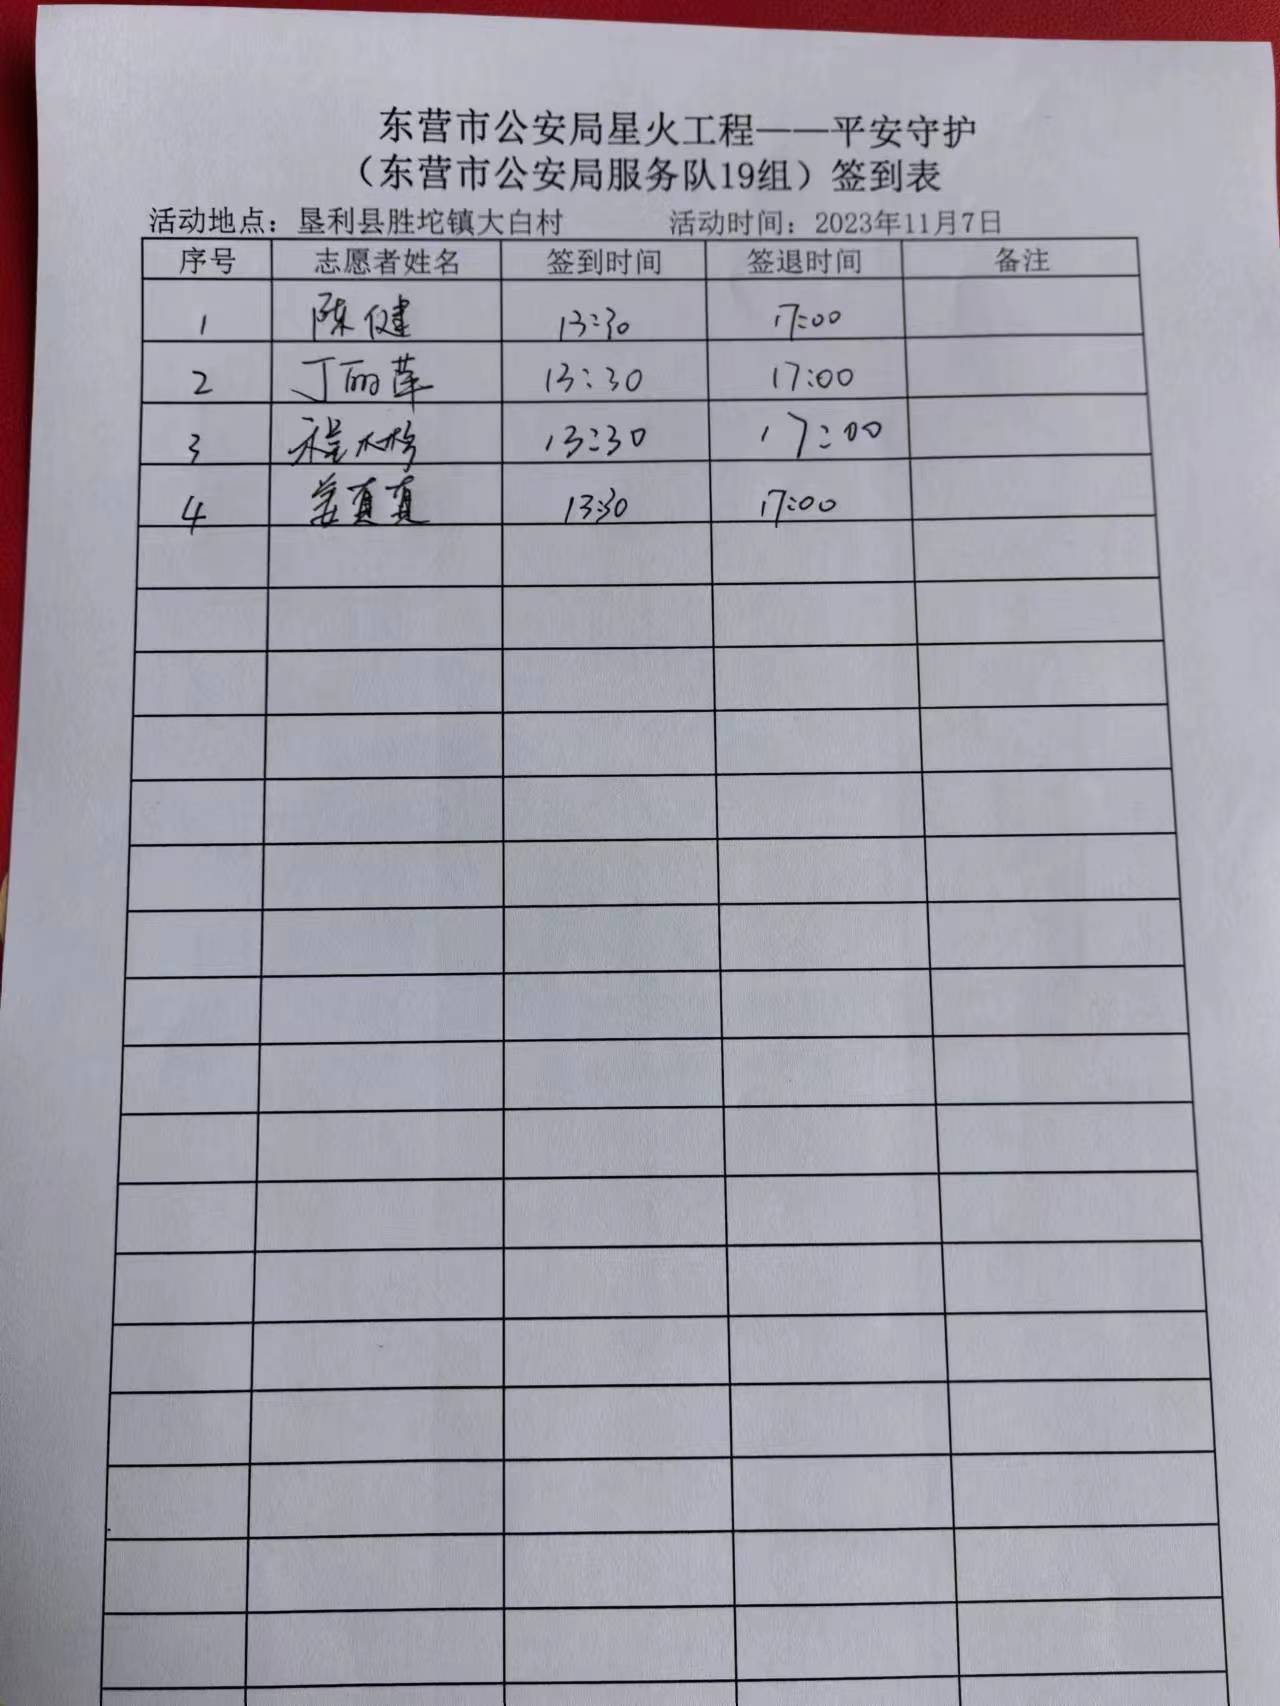 东营市公安局星火工程——平安守护
（东营市公安局服务队19组）签到表
活动地点：垦利县胜坨镇大白村 活动时间：2023年11月7日
序号 志愿者姓名 签到时间 签退时间 备注
1 陈健 13:30 17:00
2 丁丽萍 13:30 17:00
3 程 13:30 17:00
4 姜真真 13:30 17:00